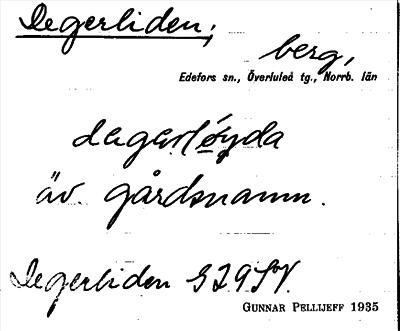 Degerliden;
berg,
Edefors sn., Överluleå tg., Norrb. län
dagarlöyda
äv. gårdsnamn.
Degerliden GJ29SV.
GUNNAR PELLIJEFF 1935